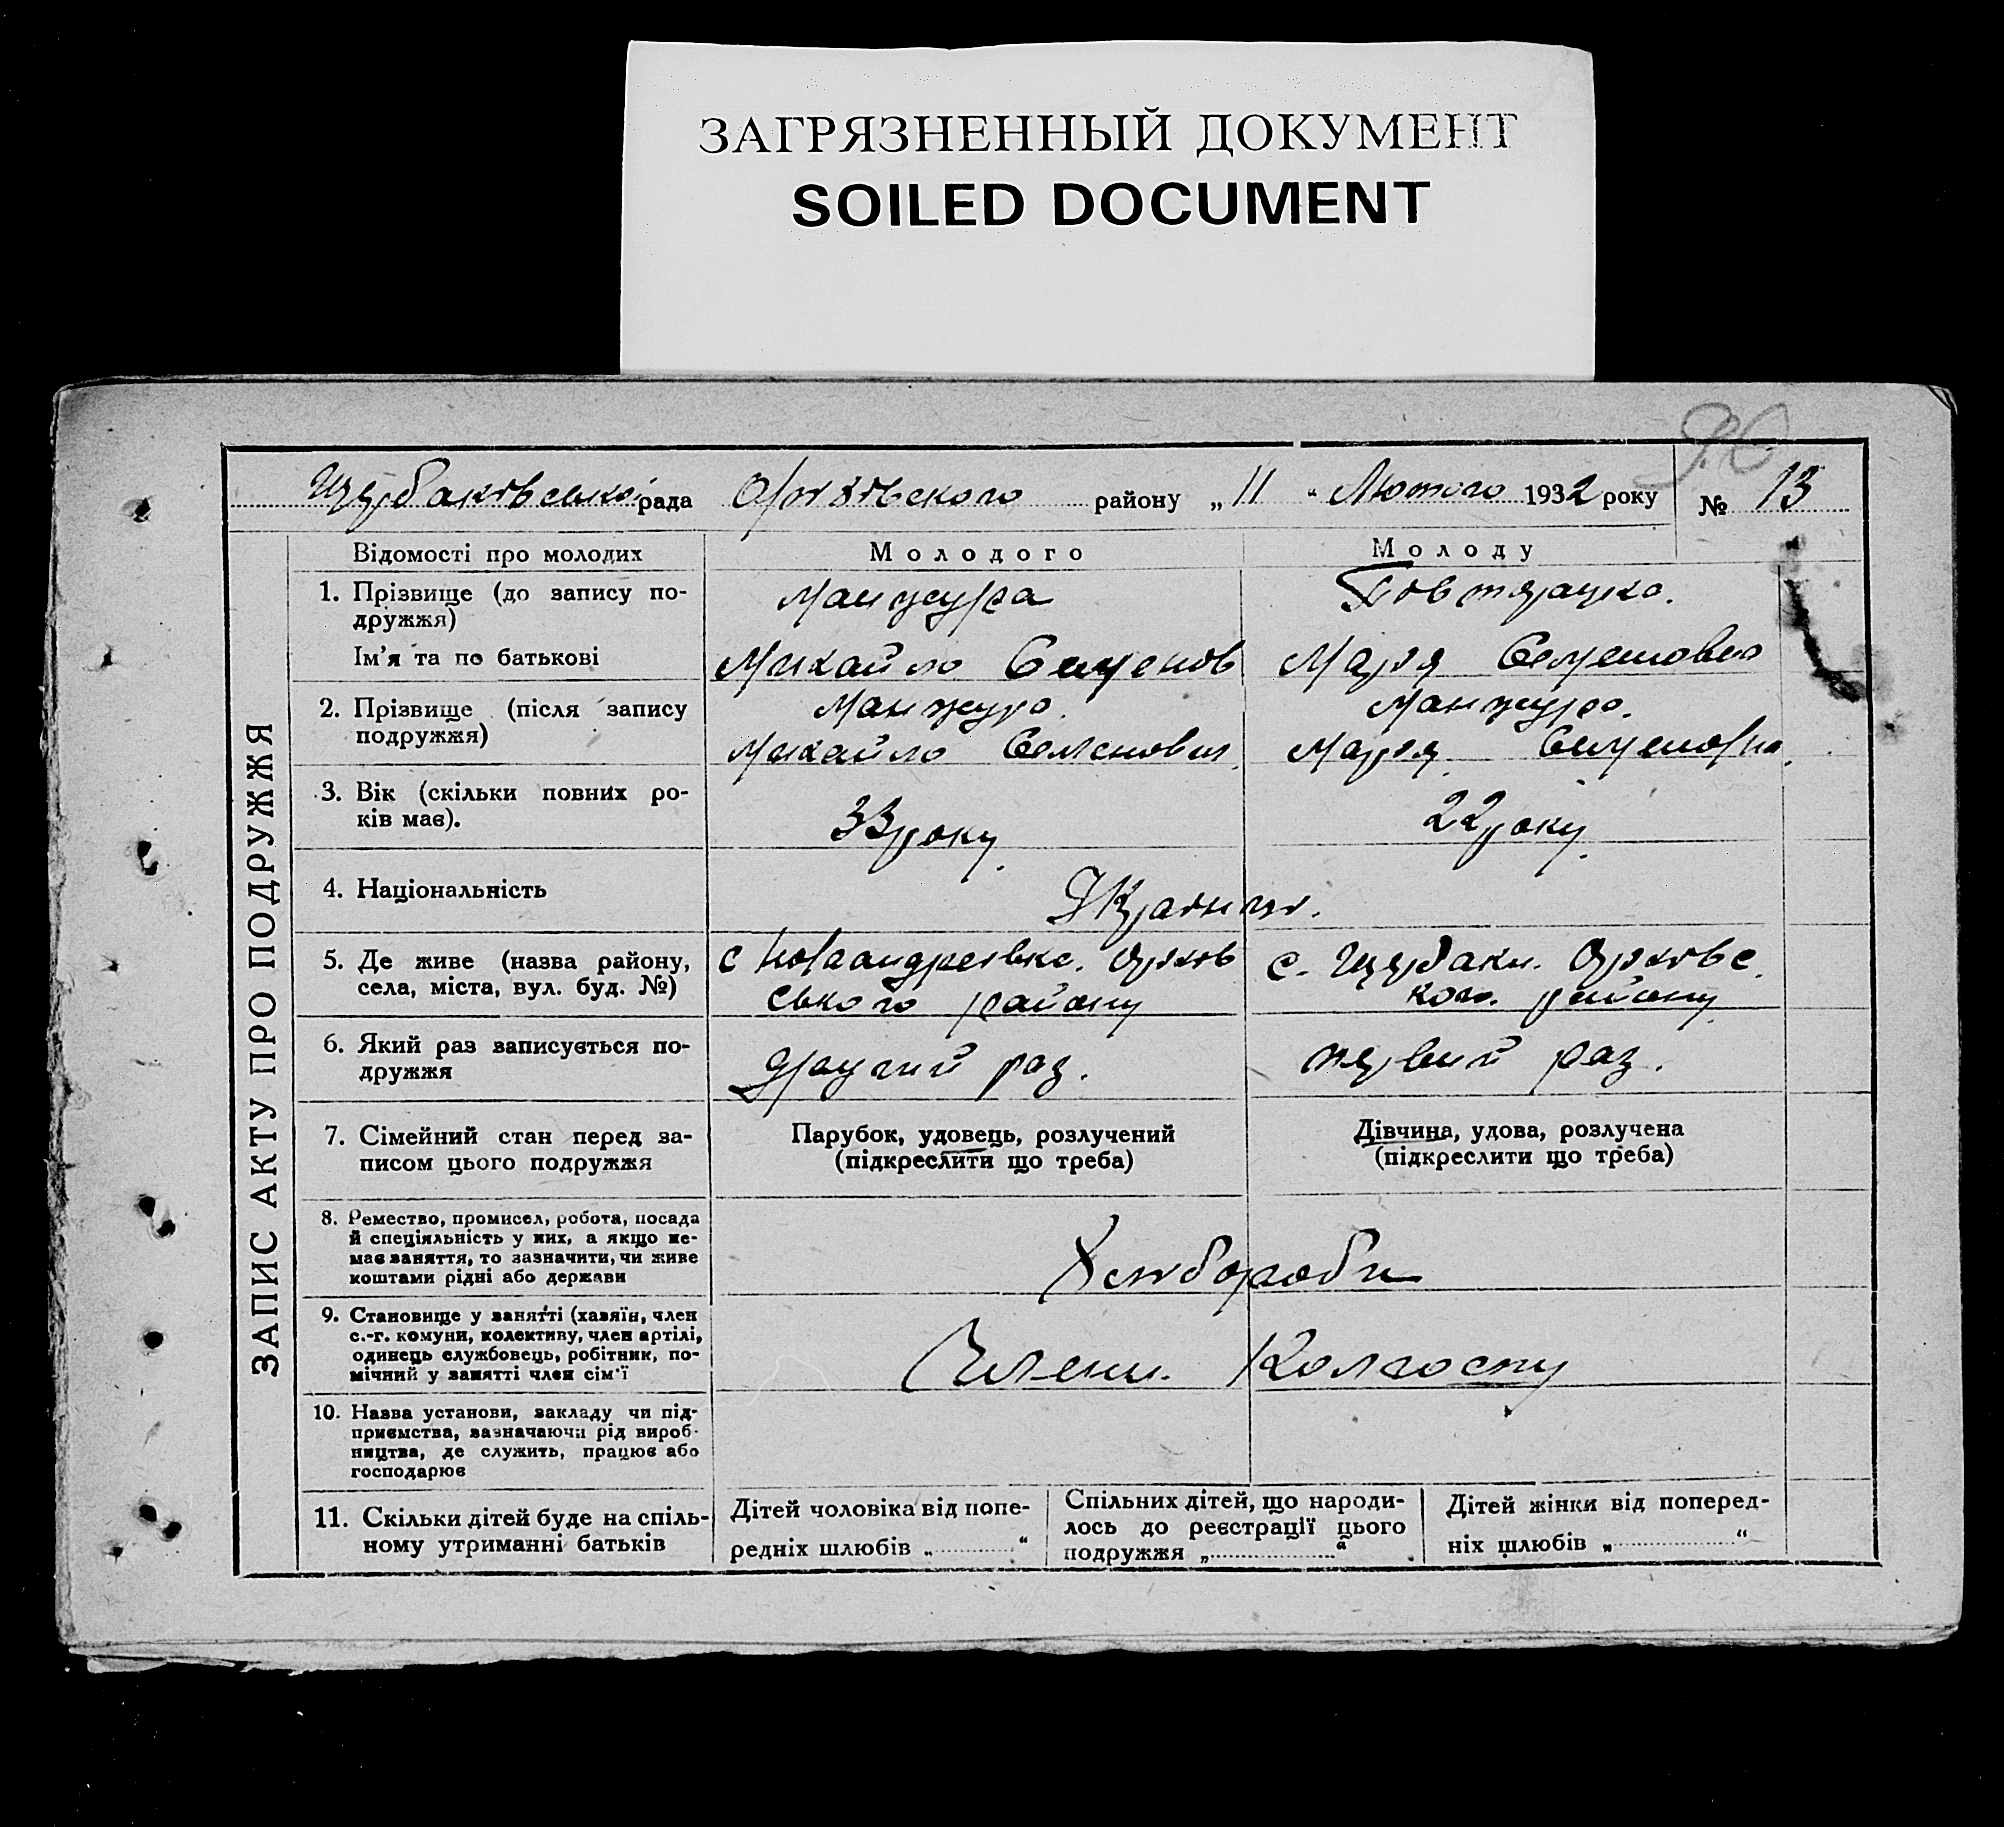 ЗАГРЯЗНЕННЫЙ ДОКУМЕНТ
SOILED DOCUMENT
90
рада району „ 11 “ Лютого 1932 року № 13
ЗАПИС АКТУ ПРО ПОДРУЖЖЯ
Відомості про молодих
Молодого
Молоду
1. Прізвище (до запису по-
дружжя)
Манжура
Ім'я та по батькові
Михайло Семенов
Мария Семеновна
2. Прізвище (після запису
подружжя)
Манжура
Михайло Семенович
Манжура.
Мария Семеновна
3. Вік (скільки повних ро-
ків має).
33 року
22 року
4. Національність
5. Де живе (назва району,
села, міста, вул. буд. №)
с Новоандреивка. Оріхов
ського району
с. Щербаки. Оріховс
кого району
6. Який раз записується по-
дружжя
другий раз.
первий раз.
7. Сімейний стан перед за-
писом цього подружжя
Парубок, удовець, розлучений
(підкреслити що треба)
Дівчина, удова, розлучена
(підкреслити що треба)
8. Ремество, промисел, робота, посада
й спеціяльність у них, а якщо не-
має заняття, то зазначити, чи живе
коштами рідні або держави
Хлібороби
9. Становище у занятті (хазяїн, член
с.-г. комуни, колективу, член артілі,
одинець службовець, робітник, по-
мічний у занятті член сім'ї
Члени. Колгоспу
10. Назва установи, закладу чи під-
приємства, зазначаючи рід вироб-
ництва, де служить, працює або
господарює
11. Скільки дітей буде на спіль-
ному утриманні батьків
Дітей чоловіка від попе-
редніх шлюбів „ “
Спільних дітей, що народи-
лось до реєстрації цього
подружжя „ “
Дітей жінки від поперед-
ніх шлюбів „ “